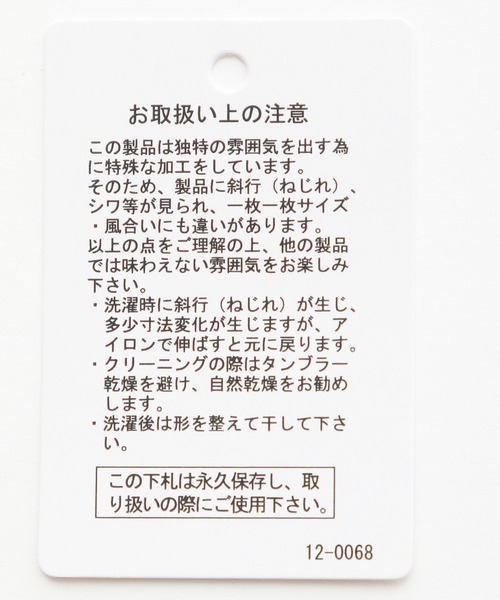 お取扱い上の注意
この製品は独特の雰囲気を出す為
に特殊な加工をしています。
そのため、製品に斜行（ねじれ）、
シワ等が見られ、一枚一枚サイズ
・風合いにも違いがあります。
以上の点をご理解の上、他の製品
では味わえない雰囲気をお楽しみ
下さい。
・洗濯時に斜行（ねじれ）が生じ、
多少寸法変化が生じますが、ア
イロンで伸ばすと元に戻ります。
・クリーニングの際はタンブラー
乾燥を避け、自然乾燥をお勧め
します。
・洗濯後は形を整えて干して下さ
い。
この下札は永久保存し、取
り扱いの際にご使用下さい。
12-0068